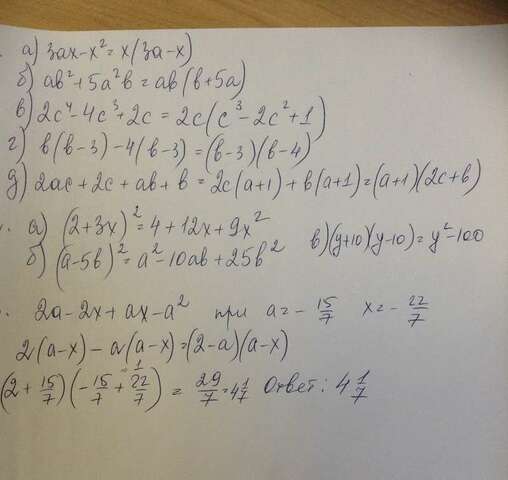 а) 3ax-x²=x(3a-x)
б) ab²+5a²b=ab(b+5a)
в) 2c⁴-4c³+2c=2c(c³-2c²+1)
г) b(b-3)-4(b-3)=(b-3)(b-4)
д) 2ac+2c+ab+b=2c(a+1)+b(a+1)=(a+1)(2c+b)
а) (2+3x)²=4+12x+9x²
б) (a-5b)²=a²-10ab+25b² в)(y+10)(y-10)=y²-100
2a-2x+ax-a² при a=-15/7 x=-22/7
2(a-x)-a(a-x)=(2-a)(a-x)
(2+15/7)(-15/7+22/7)=29/7=4 1/7 Ответ: 4 1/7